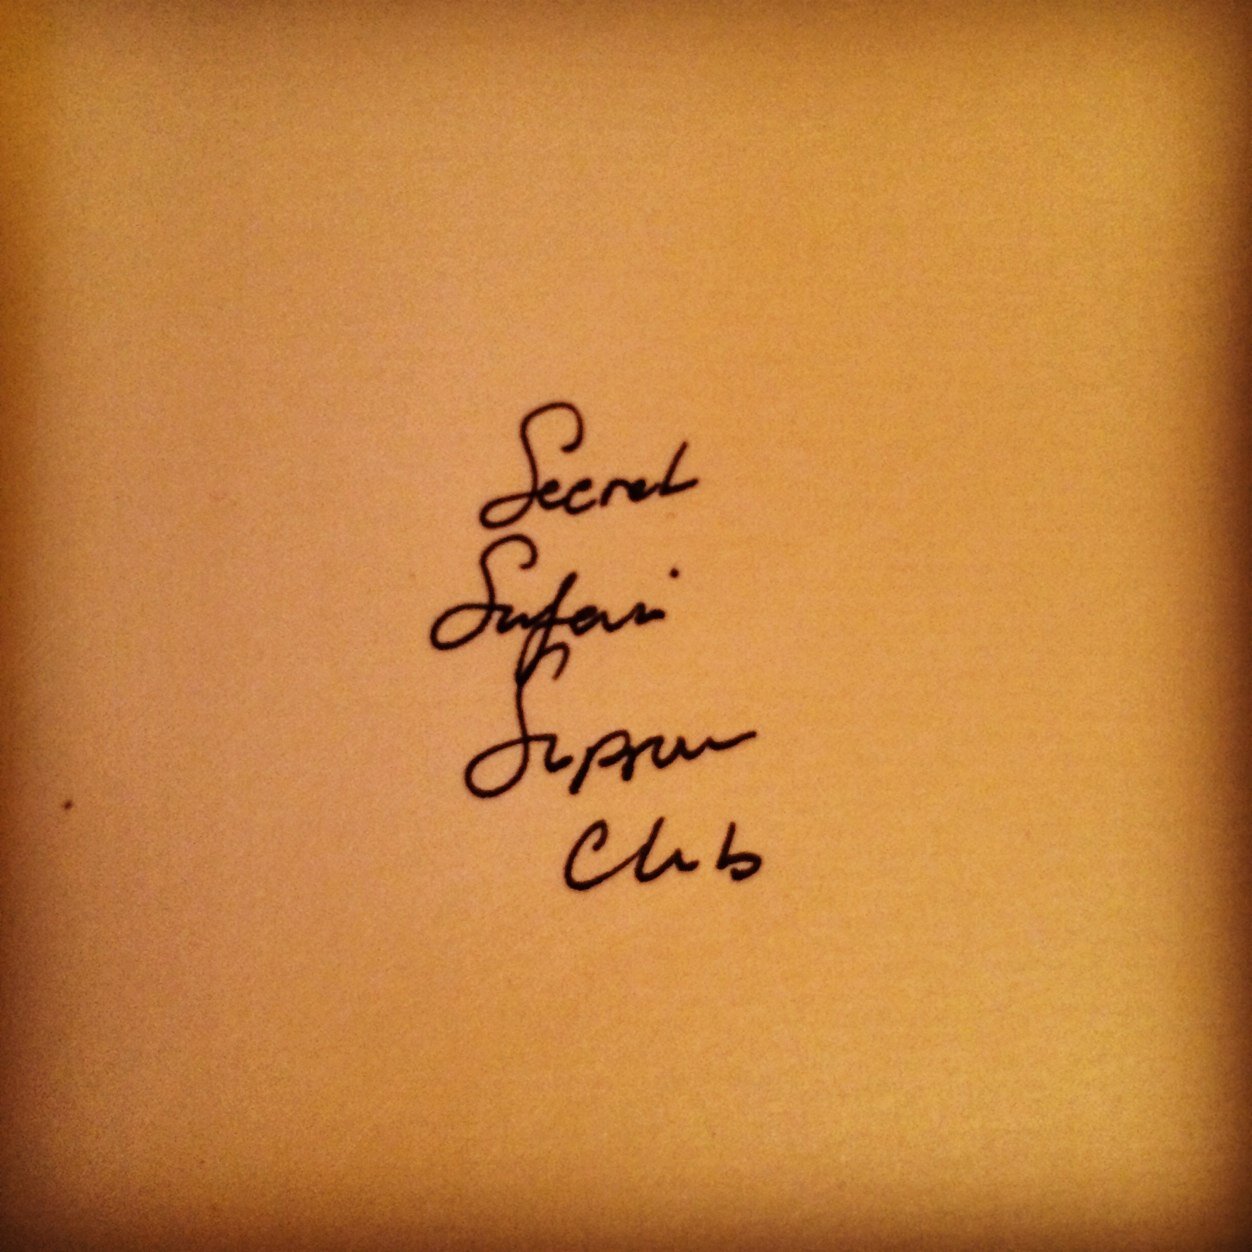 Secret
Safari
Supper
Club